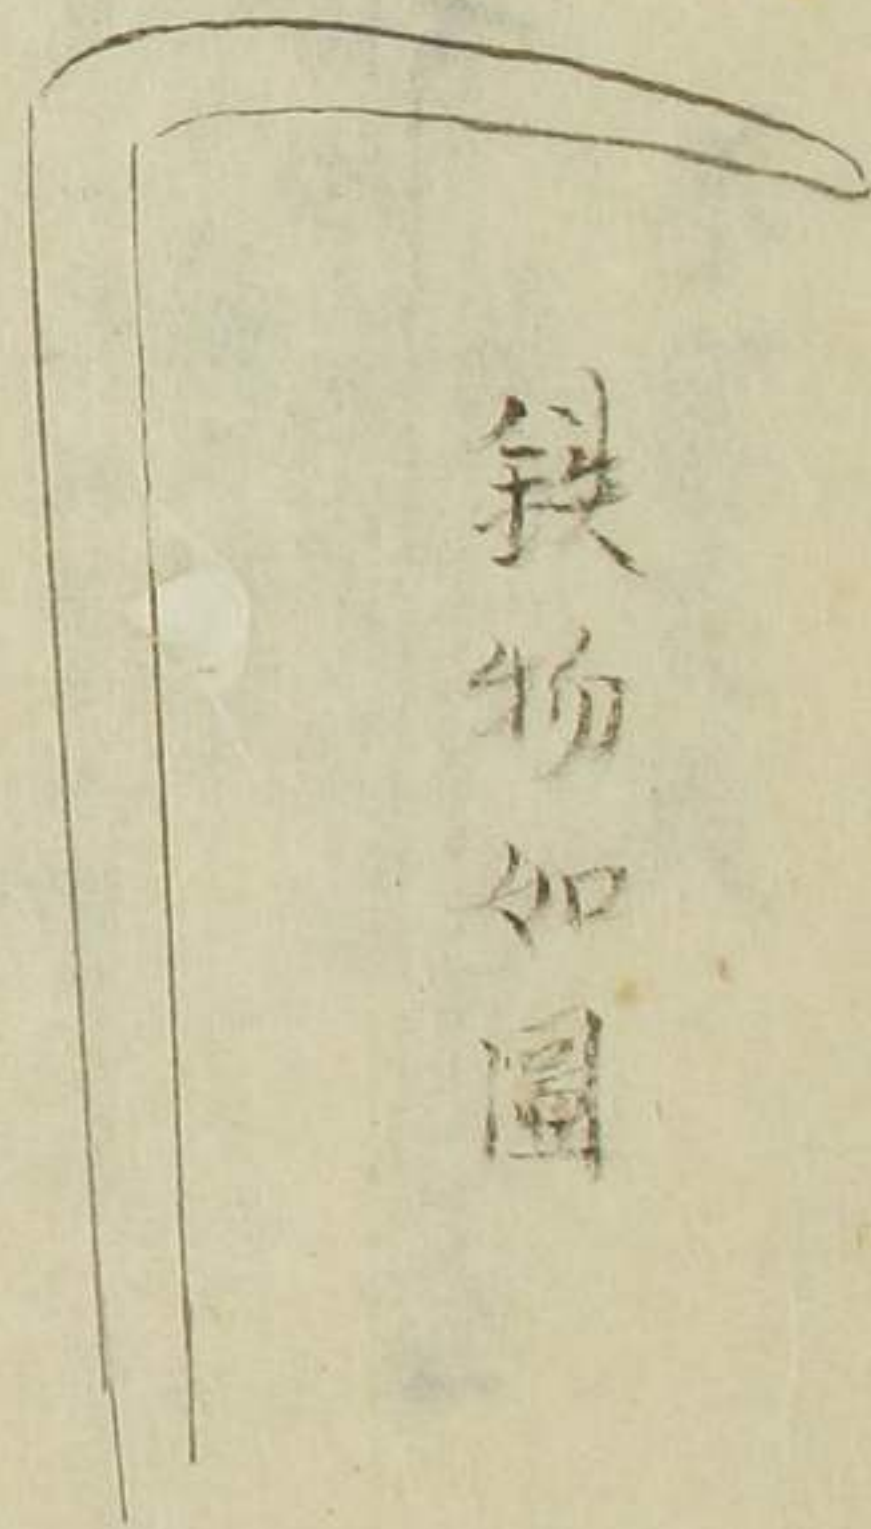 鉄物如圖